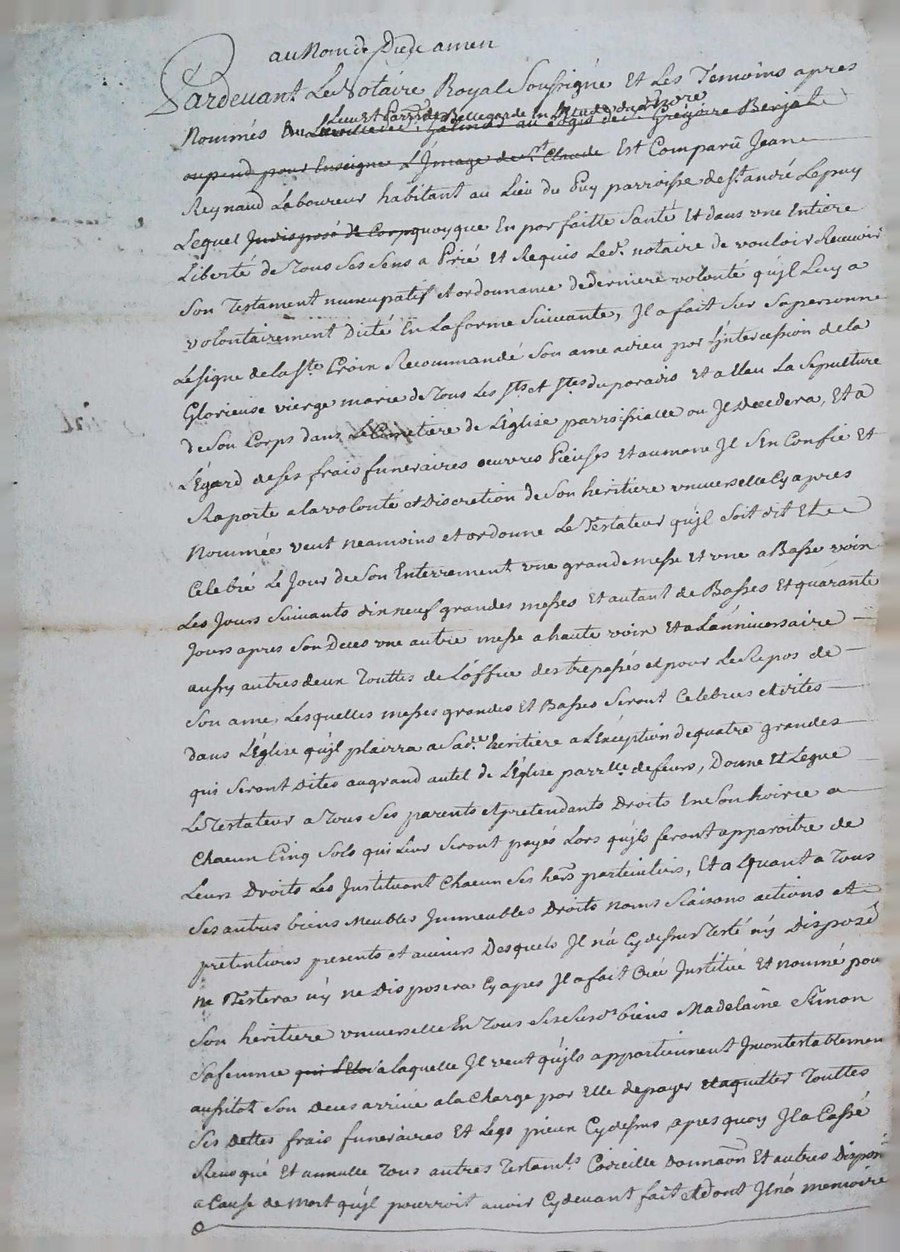 au Nom de Dieu amen
Pardevant Le Notaire Royal Soussigné Et Les Temoins apres
Lieu Et Parr.se de Bellegarde En
Nommés au logis de Sr. Grégoire Berjat
aupend pour Enseigne L'Jmage de St. Claude Est Comparû Jean
Reynaud Laboureur habitant au Lieu du Puy parroisse de St. andré Lepuy
Lequel Jndisposé de Corps quoyque En parfaitte Santé Et dans une Entiere
Liberté de Tous Ses Sens a Prié Et Requis Led. notaire de vouloir Recevoir
Son Testament nuncupatif et ordonnance de derniere volonté qu'jl Luy a
volontairement dicté En La forme Suivante, Jl a fait Sur Sa personne
Le signe de la Ste. Croix Recommandé Son ame a dieu par L'jntercession de la
Glorieuse vierge marie de Tous Les Sts et Stes du paradis et a Elleu La Sepulture
de Son Corps dans Le Cimetiere de L'Eglise parroissialle ou Jl Decedera, Et a
L'Egard de ses frais funeraires oeuvres Pieuses Et aumone Jl S'En Confie Et
Raporte a la volonté et Discretion de Son heritiere universelle Cy apres
Nommée veut neamoins et ordonne Le Testateur qu'jl Soit dit Et
Celebré Le Jour de Son Enterrement une grande messe Et une a Basse voix
Les Jours Suivants dix neuf grandes messes Et autant de Basses Et quarante
Jours apres Son Deces une autre messe a haute voix Et a L'anniversaire
aussy autres deux Touttes de L'office des trepassés et pour Le Repos de
Son ame, Lesquelles messes grandes Et Basses Seront Celebrées et dites
dans L'Eglise qu'jl plairra a Sad. heritiere a L'Exception de quatre grandes
qui Seront Dites au grand autel de L'Eglise parr.lle de feurs, Donne Et Legue
Le Testateur a Tous Ses parents et pretendants Droits En Son hoirie a
Chacun Cinq Sols qui Leur Seront payés Lors qu'jls feront apparoitre de
Leurs Droits Les Jnstituant Chacun Ses hers particuliers, Et a L'quant a Tous
Ses autres biens Meubles Jmmeubles Droits noms Raisons actions et
pretentions presents et avenirs Desquels Jl n'a Cy dessus Testé n'y Disposé
ne Testera n'y ne Disposera Cy apes Jl a fait Créé Jnstitué Et nommé pour
Son heritiere universelle En Tous Ses Susd. biens Madelaine Simon
Sa femme a laquelle Jl veut qu'jls appartiennent Jncontestablement
aussitot Son deces arrivé a la Charge par Elle de payer et aquitter Touttes
Ses dettes frais funeraires Et Legs pieux Cy dessus, apres quoy Jl a Cassé
Revoqué Et annullé Tous autres Testamts. Codicille donnaon Et autres Dispon
a Cause de Mort qu'jl pourroit avoir Cy devant fait Et dont Jl n'a memoire